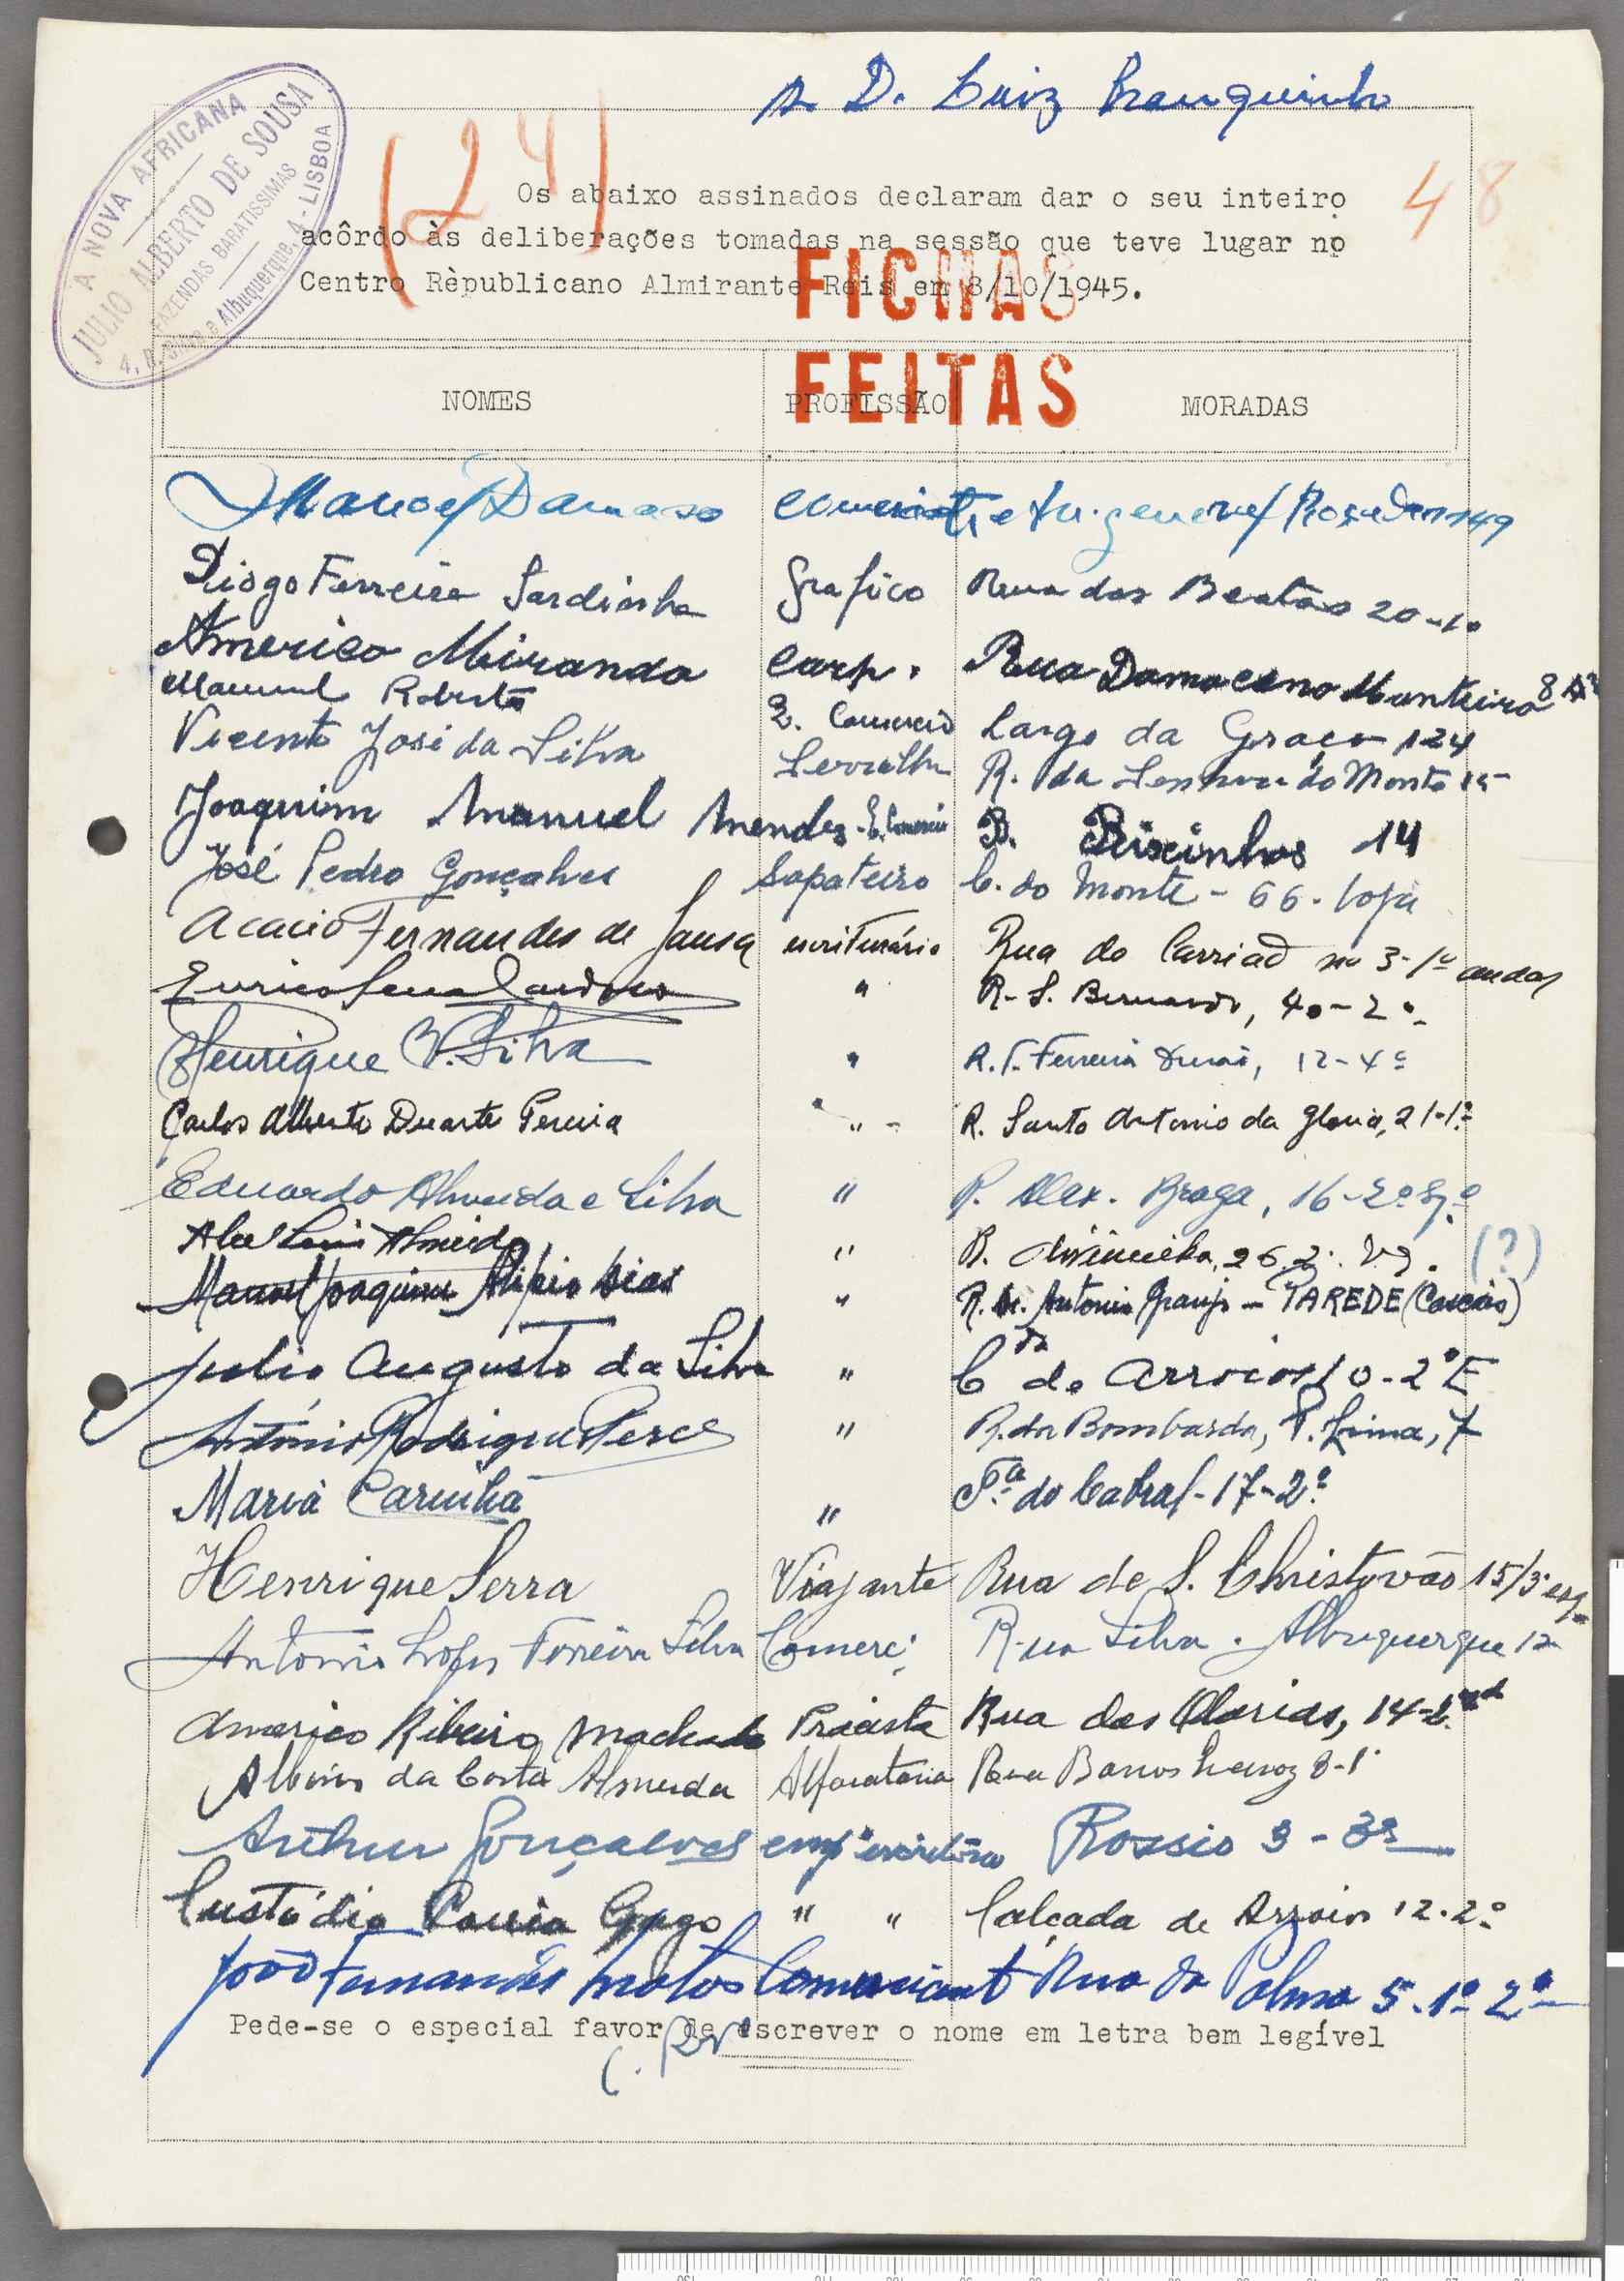 A NOVA AFRICANA
JULIO ALBERTO DE SOUSA
FAZENDAS BARATISSIMAS
4, R. Silva e Albuquerque, 4 - LISBOA
D. Luiz
(24)
48
Os abaixo assinados declaram dar o seu inteiro
acôrdo às deliberações tomadas na sessão que teve lugar no
Centro Rèpublicano Almirante Reis em 8/10/1945.
FICHAS
FEITAS
NOMES PROFISSÃO MORADAS
Manoel Damaso 149
Diogo Ferreira Sardinha Grafico Rua das Beatas 20-1º
Americo Miranda Carp. Rua Damaceno Monteiro 8
Manuel E. Comercio Largo da Graça 124
Vicente José da Silva Serralhr R. da Senhora do Monte
Joaquim Manuel Mendes - E. Comercio B. Peixinhos 14
José Pedro Gonçalves Sapateiro C. do Monte - 66 - loja
Acacio Fernandes de Sousa escriturário Rua do Carrião nº 3-1º andar
" R. S. Bernardo, 40-2º
Henrique V. Silva " R. T. Ferreira 12-4º
Carlos Alberto Duarte Pereira " R. Santo Antonio da Gloria, 21-1º
Eduardo Almeida e Silva " R. Alex. Braga, 16-2º Eqº
Almeida " R. 26.2º (?)
Manuel Joaquim Alipio Dias " R. Dr. Antonio Granjo - PAREDE (Cascais)
Julio Augusto da Silva " Cda de Arroios 10-2º E
António Rodrigues Peres " R. da Bombarda, P. Lima, 7
Maria " Tª do Cabral - 17-2º
Henrique Serra Viajante Rua de S. Christovão 15/3º esq.
Antonio Lopes Ferreira Silva Comerc. Rua Silva Albuquerque 12
Americo Ribeiro Machado Pracista Rua das Olarias, 14-
Albino da Costa Almeida Alfaiataria Rua Barros Queiroz 8-1º
Arthur Gonçalves empº escritório Rossio 3 - 3º
Custódio Gago " " Calçada de Arroios 12-2º
João Fernandes Matos Comerciant Rua da Palma 5-1º 2º
Pede-se o especial favor de escrever o nome em letra bem legível